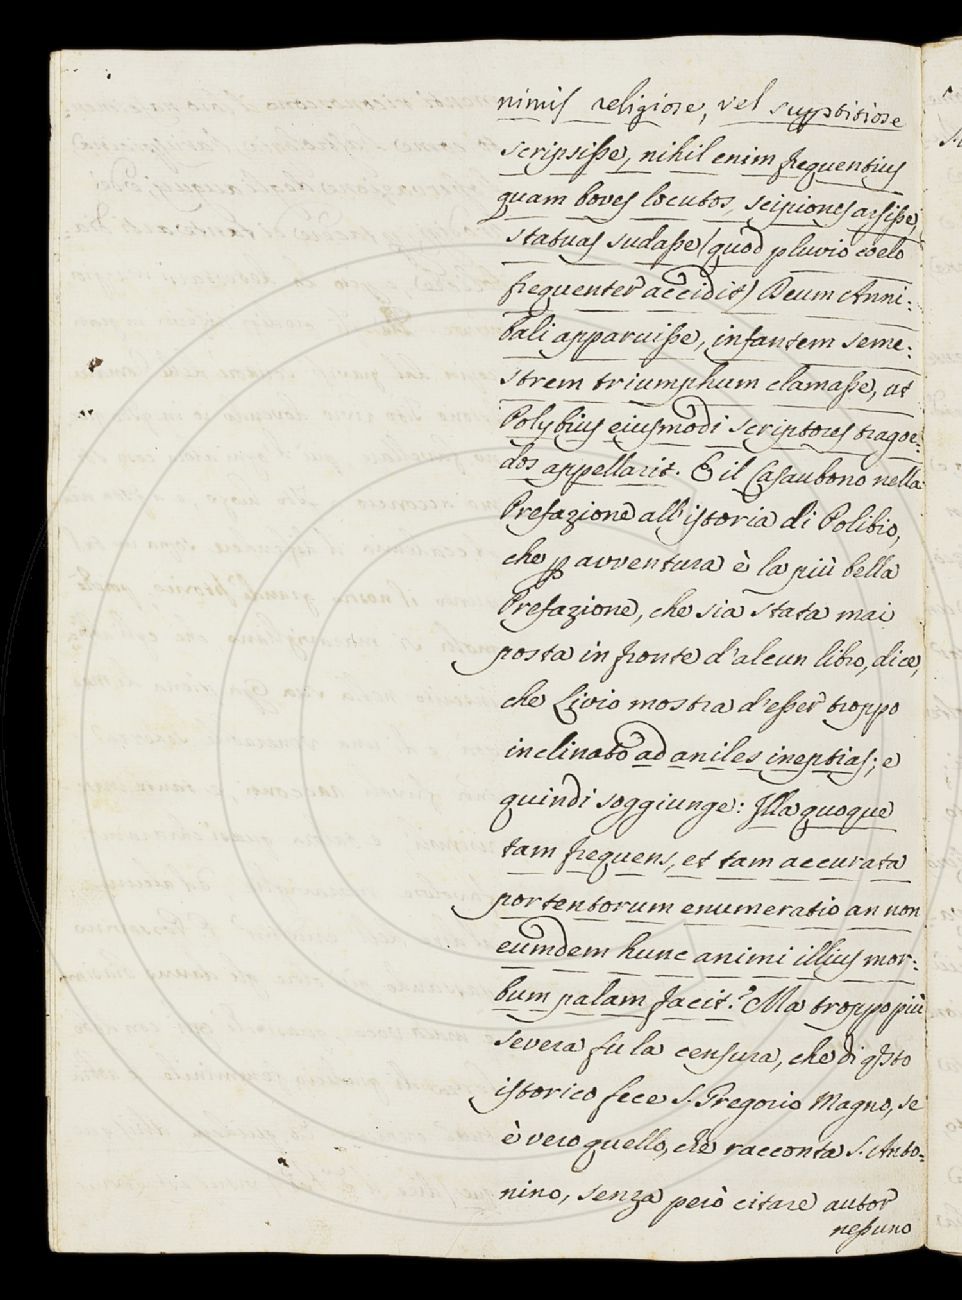 nimis religiose, vel supstitiose
scripsisse, nihil enim frequentius
quam boves locutos, scipiones arsisse,
statuas sudasse (quod pluvio coelo
frequenter accidit) Deum Anni:
bali apparuisse, infantem seme:
strem triumphum clamasse, at
Polybius eiusmodi scriptores tragoe:
dos appellarit. E il Casaubono nella
Prefazione all'istoria di Polibio,
che p avventura è la più bella
Prefazione, che sia stata mai
posta in fronte d'alcun libro, dice,
che Livio mostra d'esser troppo
inclinato ad aniles ineptias; e
quindi soggiunge: Illa quoque
tam frequens, et tam accurata
portentorum enumeratio an non
eumdem hunc animi illius mor:
bum palam facit? Ma troppo più
severa fu la censura, che di qsto
istorico fece S. Gregorio Magno, se
è vero quello, che racconta S. Anto:
nino, senza però citare autor
nessuno